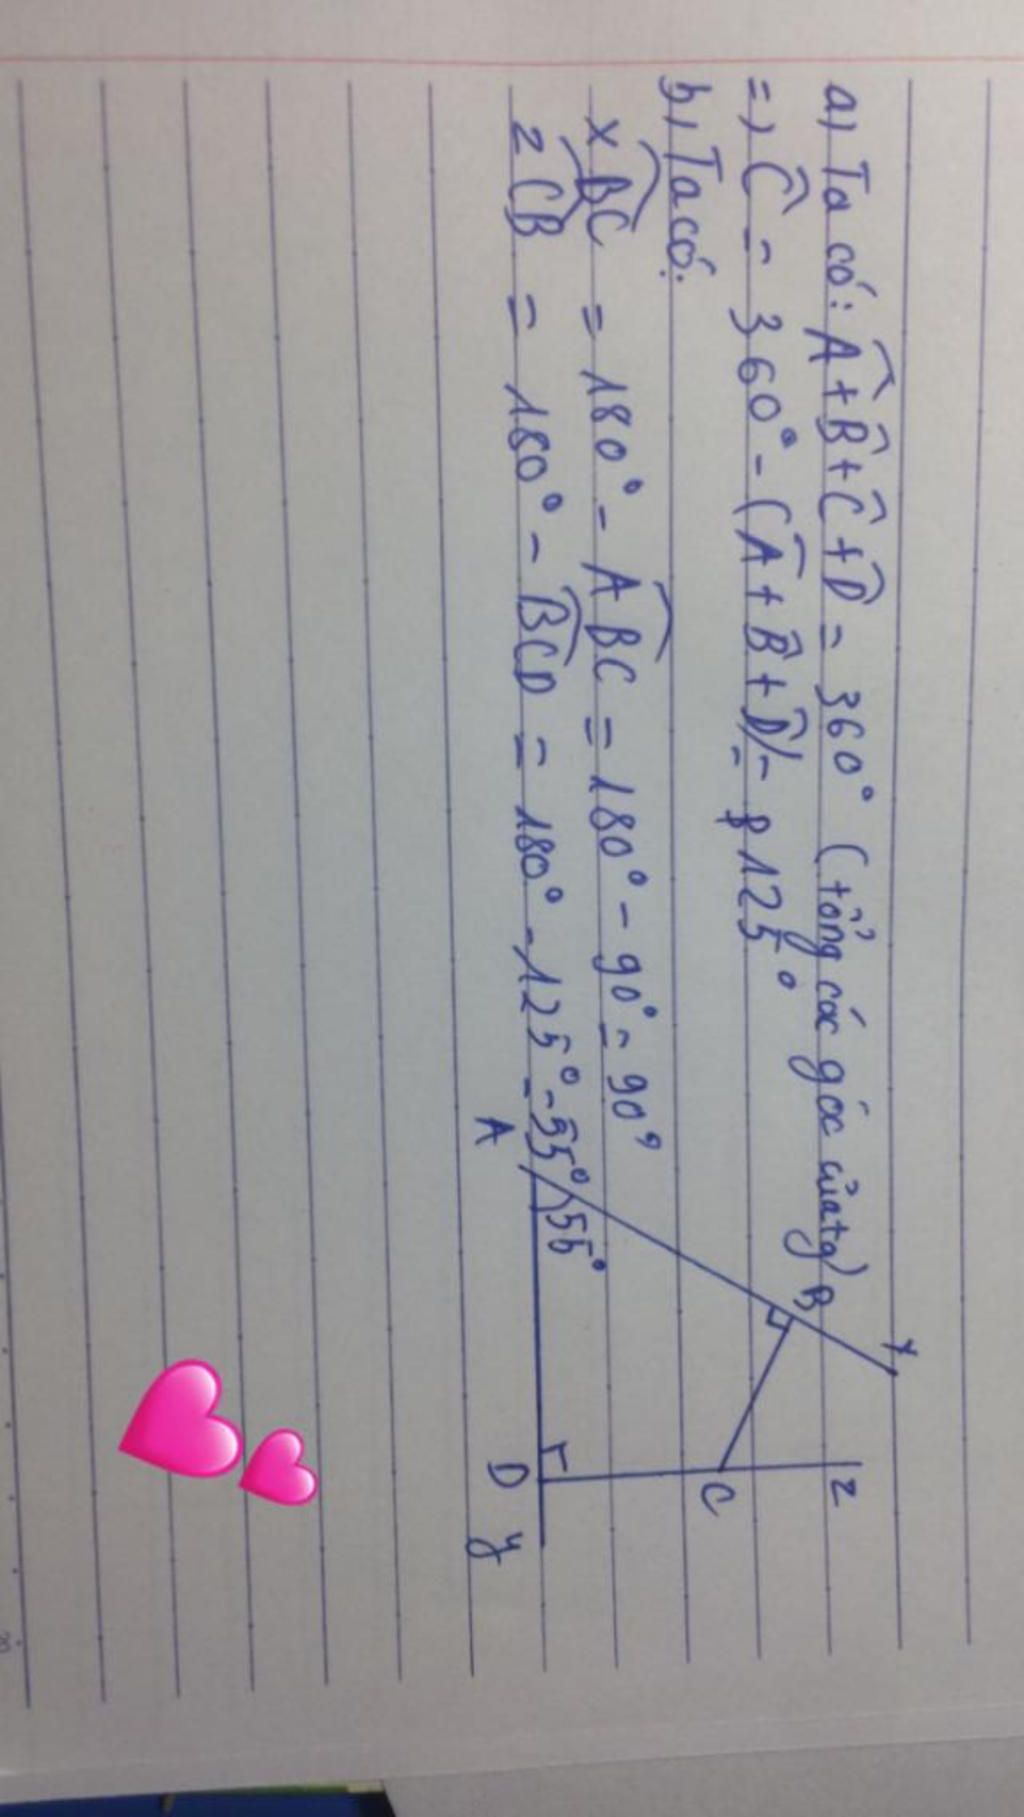 a) Ta có: Â + B̂ + Ĉ + D̂ = 360° (tổng các góc của tg)
=) Ĉ = 360° - (Â + B̂ + D̂) = 125°
b) Ta có:
xBC = 180° - ABC = 180° - 90° = 90°
zCB = 180° - BCD = 180° - 125° = 55°
A
55°
B
x
z
C
D
y